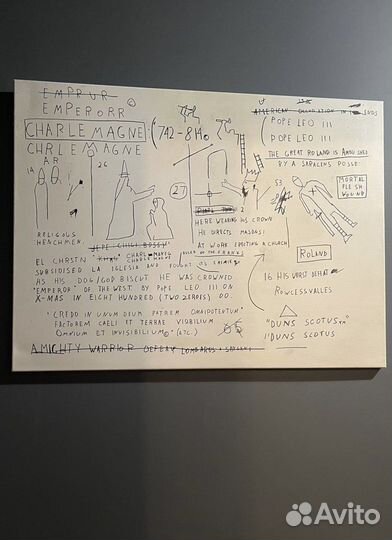 EMPRUR
EMPERORR
CHARLEMAGNE
(742-814.
CHRLEMAGNE
AR
19
26
27
RELIGOUS
HENCHMEN.
HERE WEARING HIS CROWN
HE DIRECTS MASONS
AT WORK ERECTING A CHURCH
RULER OF THE FRANKS
EL CHRSTN
CHARLEMAGNE
SUBSIDISED LA IGLESIA AND FOUGHT ITS ENEMIES
AS HIS DOG/GOD BISCUT. HE WAS CROWNED
"EMPEROR" OF THE WEST BY POPE LEO III ON
X-MAS IN EIGHT HUNDRED (TWO ZEROES) 00.
"CREDO IN UNUM DEUM PATREM OMNIPOTENTUM"
FACTOREM CAELI ET TERRAE VISIBILIUM
OMNIUM ET INVISIBILIUM" (ETC.)
A MIGHTY WARRIOR DEFEAT LOMBARDS
AMERICAN
IN
ENDS
POPE LEO III
POPE LEO III
THE GREAT ROLAND IS AMBUSHED
BY A SARACENS POSSE
53
MORTAL
FLESH
WOUND
ROLAND
16 HIS WORST DEFEAT
ROWCESVALLES
"DUNS SCOTUS"
1'DUNS SCOTUS
Avito